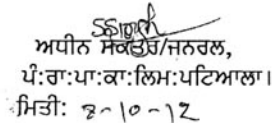 ਅਧੀਨ ਸਕੱਤਰ/ਜਨਰਲ,
ਪੰ:ਰਾ:ਪਾ:ਕਾ:ਲਿਮ:ਪਟਿਆਲਾ।
ਮਿਤੀ: 8-10-12